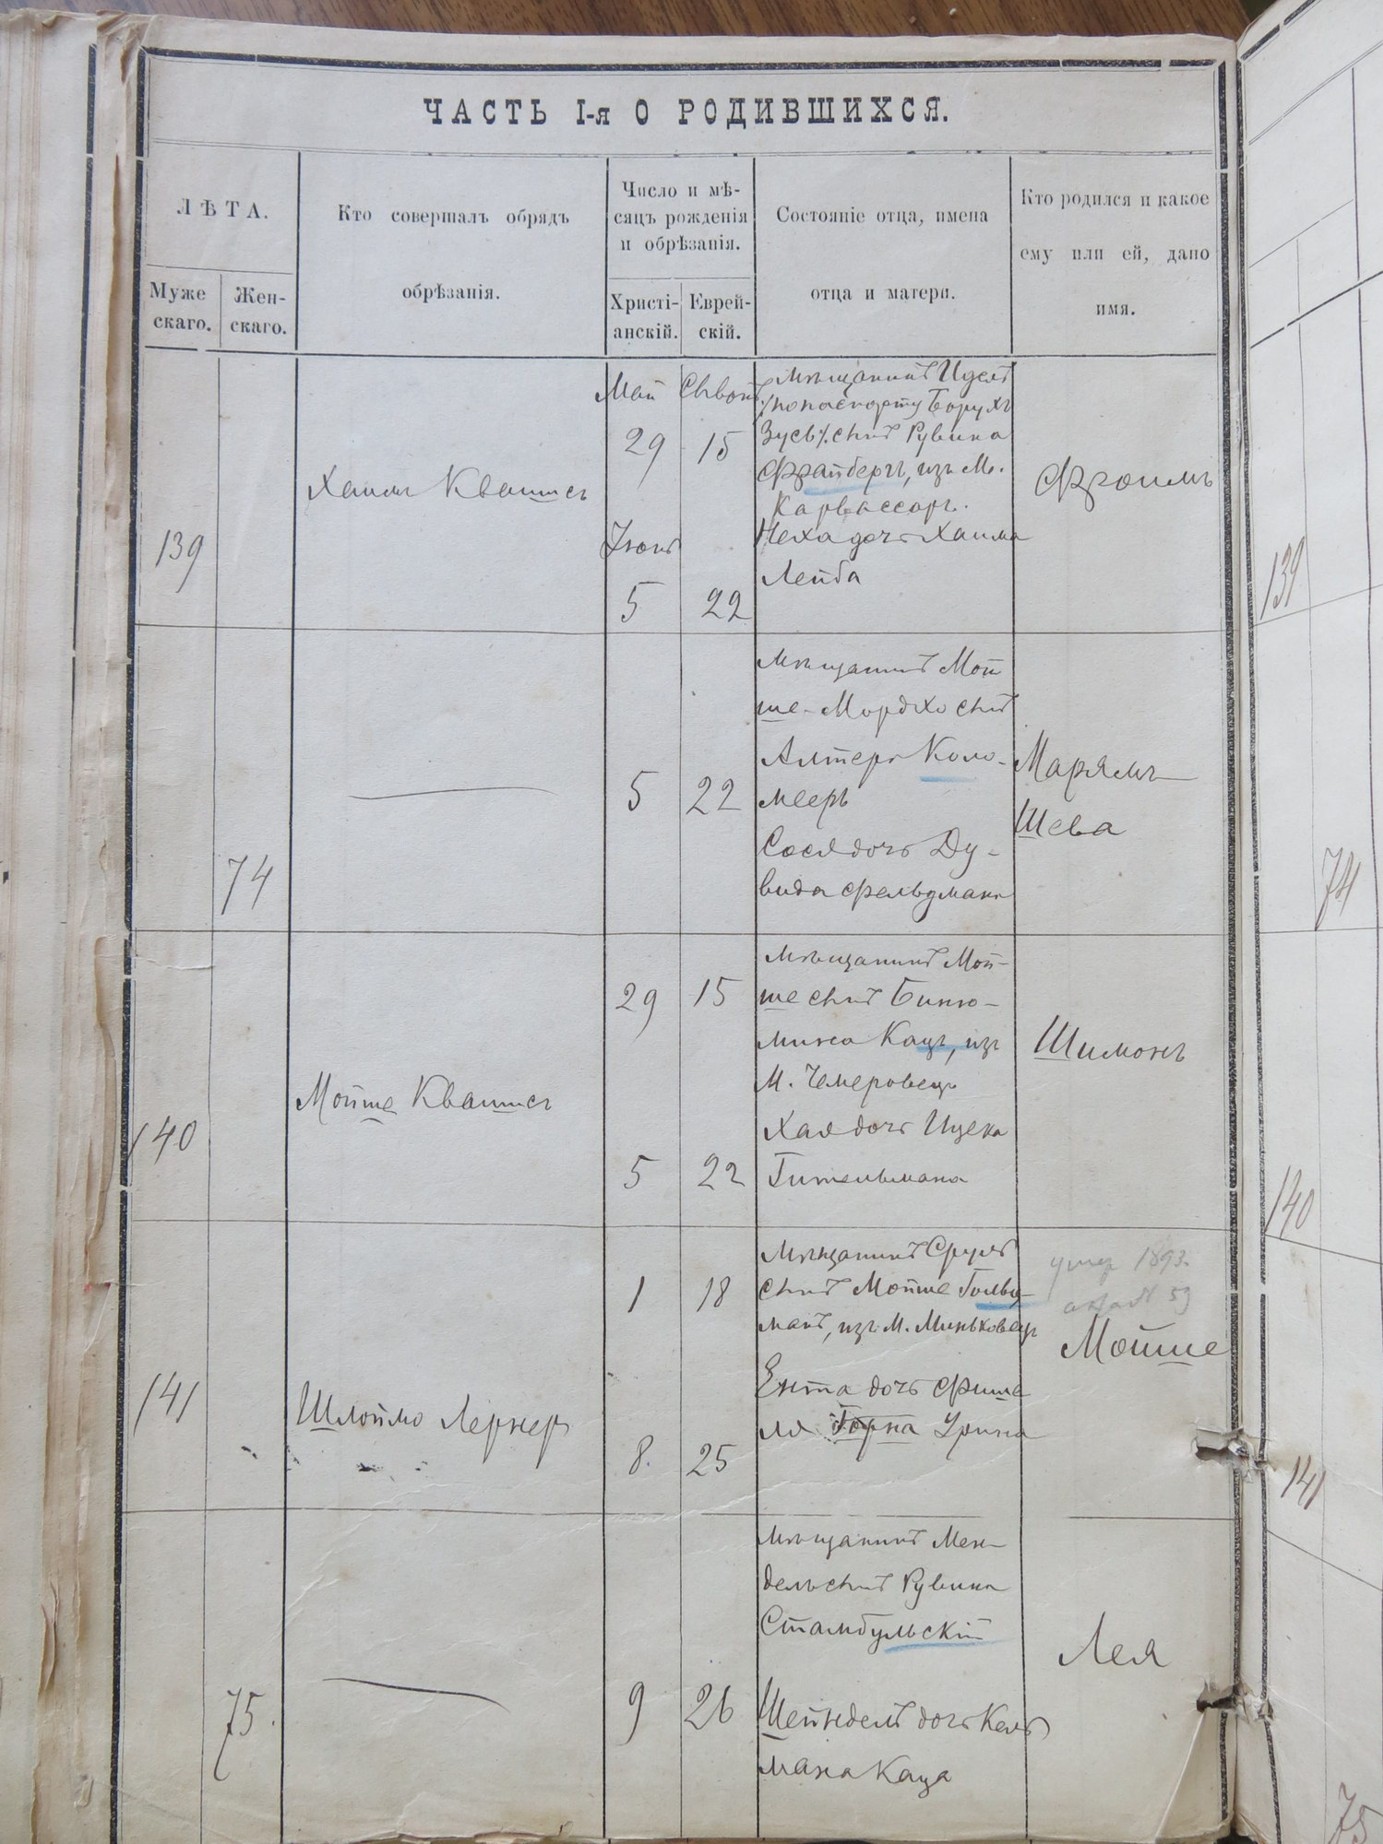 ЧАСТЬ I-я О РОДИВШИХСЯ.
ЛѢТА.
Муже
скаго.
Жен-
скаго.
Кто совершалъ обрядъ
обрѣзанія.
Число и мѣ-
сяцъ рожденія
и обрѣзанія.
Христі-
анскій.
Еврей-
скій.
Состояніе отца, имена
отца и матери.
Кто родился и какое
ему или ей, дано
имя.
139
Хаимъ Квашисъ
Май
29
15
Іюнь
5 22
Мѣщанинъ Идель
/по паспорту Борухъ
Зусь/. сынъ Рувина
Фрайбергъ, изъ М.
Карвассоръ.
Неха дочь Хаима
Лейба
Фроимъ
139
74
5 22
Мѣщанинъ Мой
ше-Мордхо сынъ
Алтера Коло-
мееръ
Сося дочь Ду-
вида Фельдмана
Марямъ
Шева
74
140
Мойше Квашисъ
29 15
5 22
Мѣщанинъ Мой-
ше сынъ Биню-
мина Кацъ, изъ
М. Чемеровецъ
Хая дочь Ицека
Гительмана
Шимонъ
140
141
Шлоймо Лернеръ
1 18
8. 25
Мѣщанинъ Сруль
сынъ Мойше Гольд-
манъ, изъ М. Миньковецъ
Ента дочь Фише
ля Горна Урина
умер 1893.
59
Мойше
141
75.
9 26
Мѣщанинъ Мен-
дель сынъ Рувина
Стамбульскій
Шейндель дочь Кель
мана Каца
Лея
75